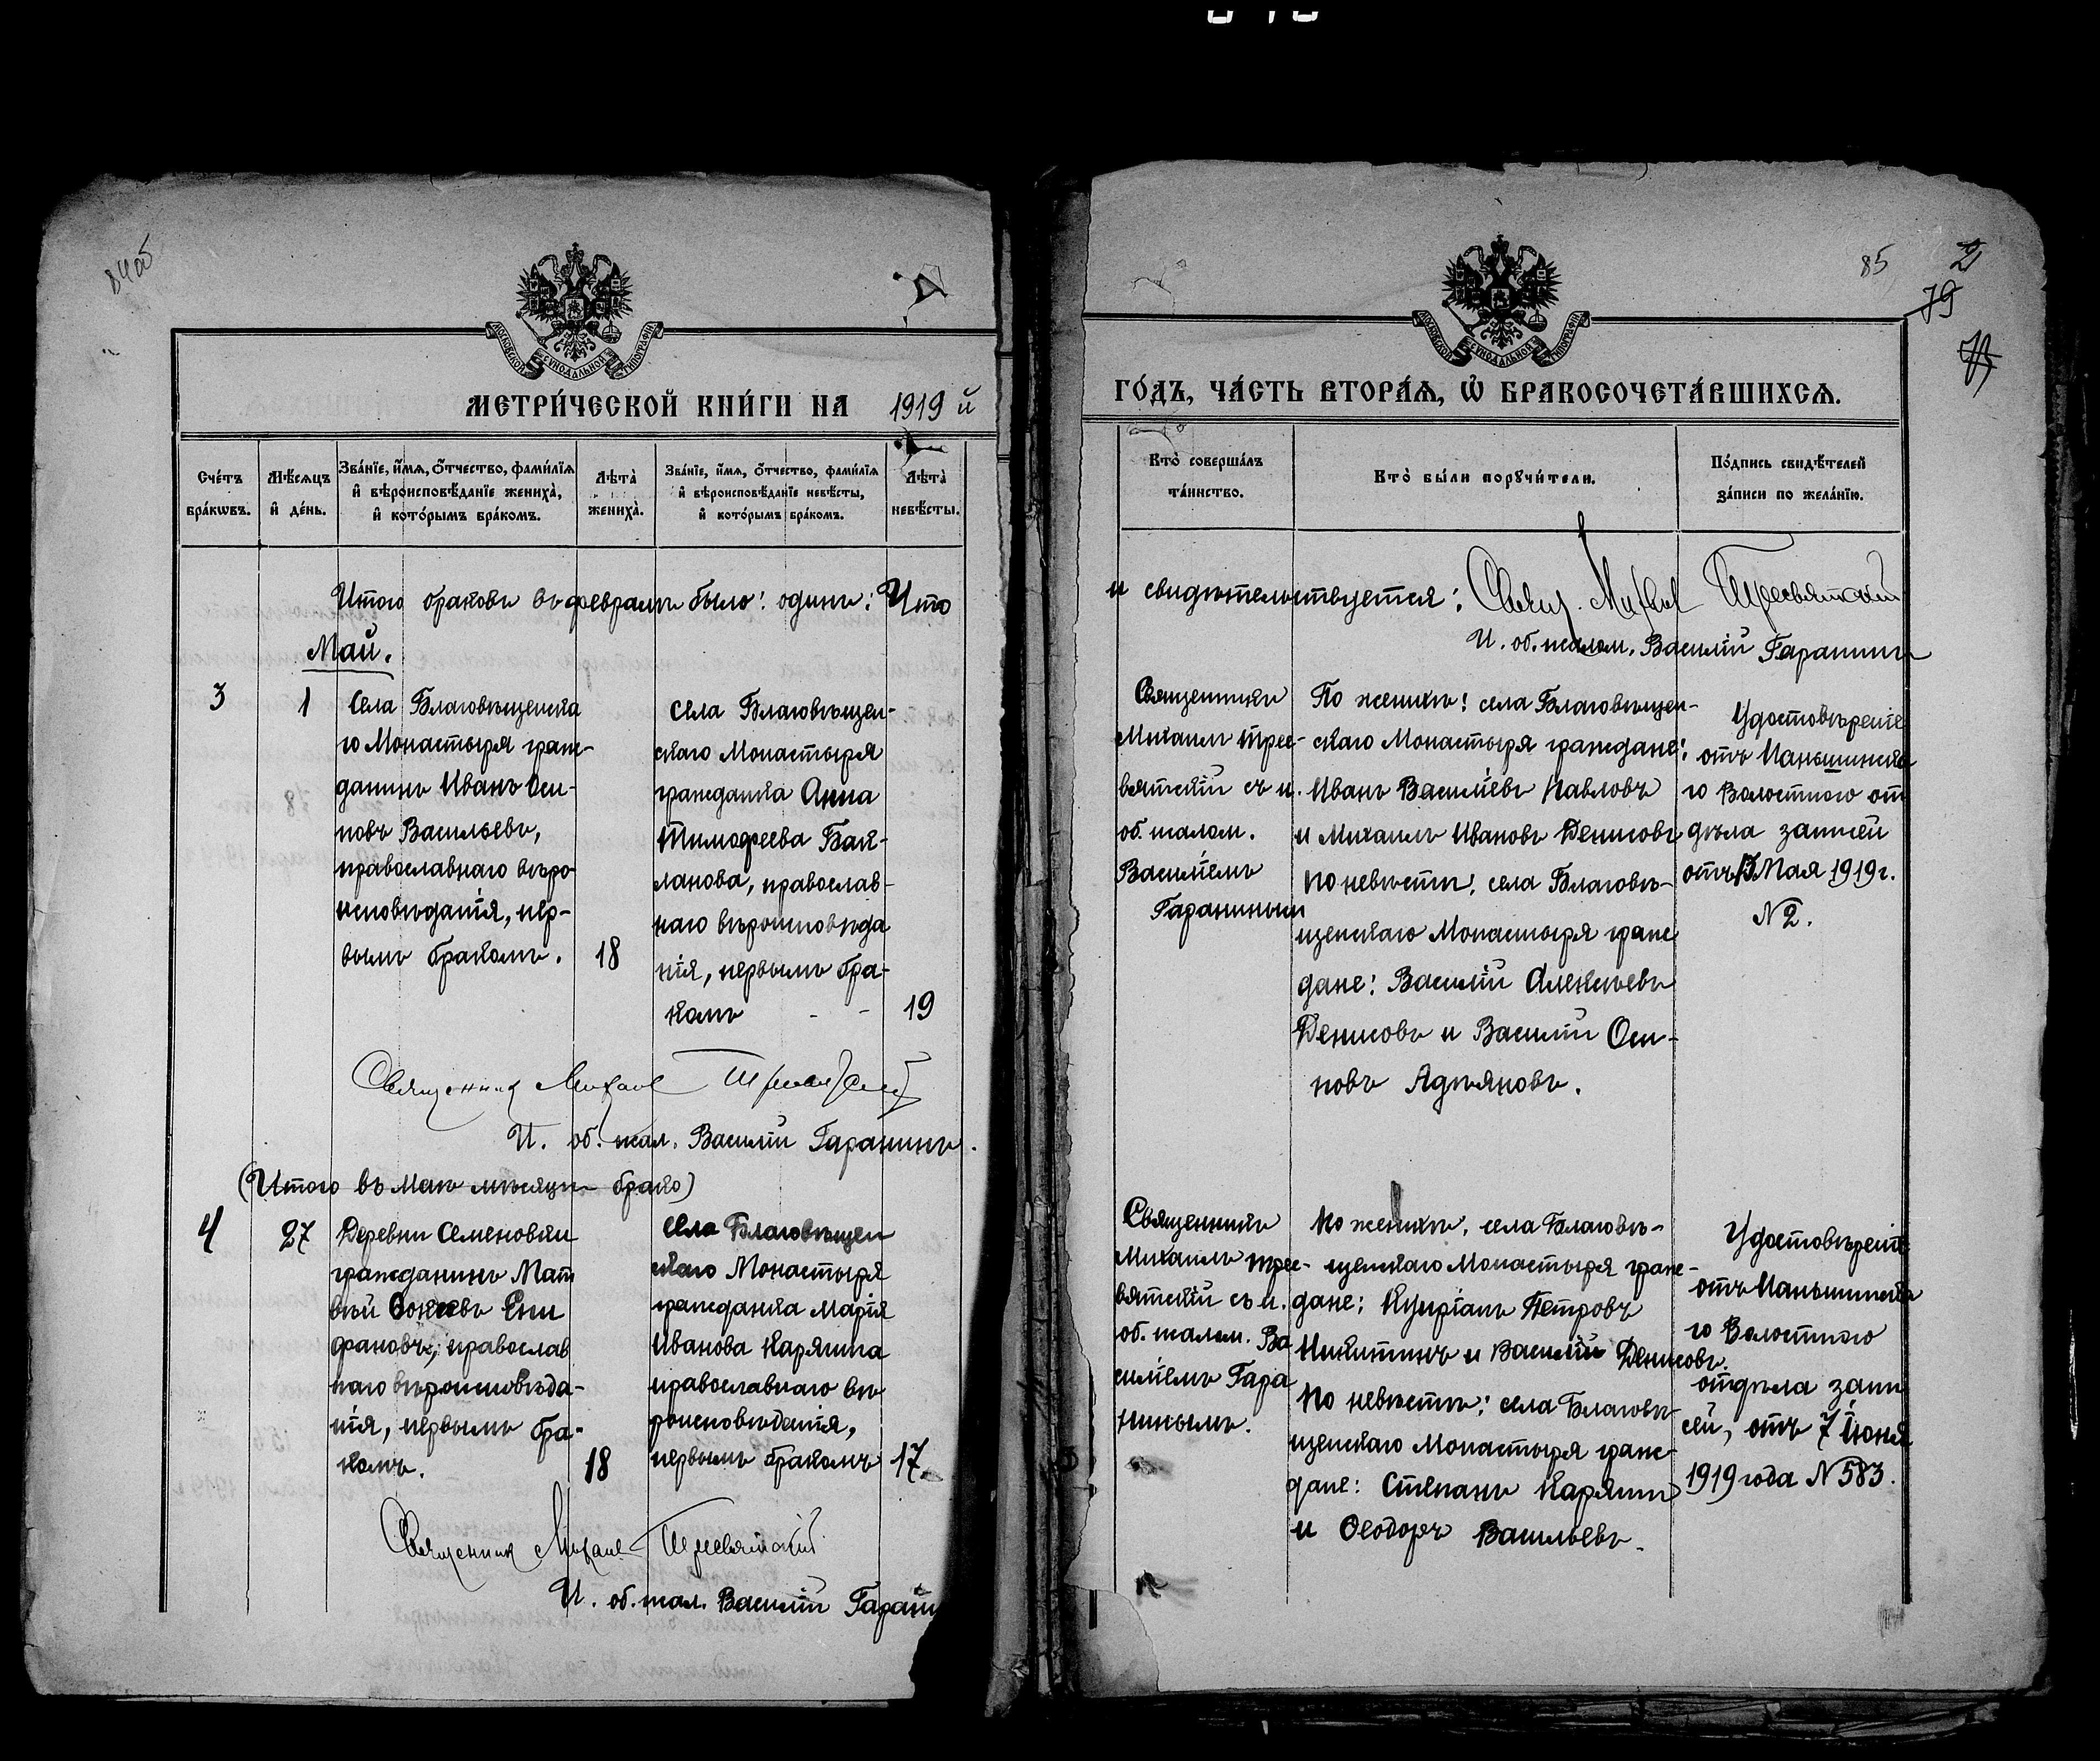 84 об
МОСКОВСКОЙ СѴНОДАЛЬНОЙ ТИПОГРАФІИ
МЕТРИ́ЧЕСКОЙ КНИ́ГИ НА 1919 й
Сче́тъ бра́кѡвъ.
Мѣ́сяцъ и де́нь.
Зва́нїе, и́мѧ, ѻ́тчество, фами́лїѧ
и҆ вѣроисповѣ́данїе жениха̀,
и҆ кото́рымъ бра́комъ.
Лѣта̀ жениха̀.
Зва́нїе, и́мѧ, ѻ́тчество, фами́лїѧ
и҆ вѣроисповѣ́данїе невѣ́сты,
и҆ кото́рымъ бра́комъ.
Лѣта̀ невѣ́сты.
Итого браковъ въ февралѣ было: одинъ: Что
Май.
3
1
Села Благовѣщенска
го Монастыря граж-
данинъ Иванъ Оси-
повъ Васильевъ,
православнаго вѣро
исповѣданія, пер-
вымъ бракомъ.
18
села Благовѣщен-
скаго Монастыря
гражданка Анна
Тимофеева Бак-
ланова, православ-
наго вѣроисповѣда
нія, первымъ бра-
комъ - -
19
Священник Михаил Тресвятский
И. об. псал. Василій Гаранинъ.
(Итого въ маѣ мѣсяцѣ брако)
4
27
Деревни Семеновки
гражданинъ Мат
вѣй Фокіевъ Епи
фановъ, православ
наго вѣроисповѣда-
нія, первымъ бра-
комъ.
18
села Благовѣщен
скаго Монастыря
гражданка Марія
Иванова Карягина
православнаго вѣ
роисповѣданія,
первымъ бракомъ
17.
Священник Михаил Тресвятский
И. об. псал. Василій Гарани
85
2
79
МОСКОВСКОЙ СѴНОДАЛЬНОЙ ТИПОГРАФІИ
ГО́ДЪ, ЧА́СТЬ ВТОРА́Ѧ, Ѽ БРАКОСОЧЕТА́ВШИХСѦ.
Кто̀ соверша́лъ
та́инство.
Кто̀ бы́ли порꙋчи́тели.
По́дпись свидѣ́телей
за́писи по жела́нїю.
и свидѣтельствуется: Свящ. Михаил Тресвятский
И. об. псалом. Василій Гаранинъ
Священникъ
Михаилъ Трес-
вятскій съ и.
об. псалом.
Василіемъ
Гаранинымъ
По женихѣ: села Благовѣщен-
скаго Монастыря граждане:
Иванъ Василіевъ Павловъ
и Михаилъ Ивановъ Денисовъ
по невѣстѣ: села Благовѣ-
щенскаго Монастыря граж
дане: Василій Алексѣевъ
Денисовъ и Василій Оси-
повъ Адрѣяновъ.
Удостовѣреніе
отъ Паньшинска
го Волостного от
дѣла записей
отъ 13 Мая 1919 г.
№ 2.
Священникъ
Михаилъ Трес-
вятскій съ и.
об. псалом. Ва
силіемъ Гара
нинымъ.
По женихѣ: села Благовѣ-
щенскаго Монастыря граж-
дане: Кипріанъ Петровъ
Никитинъ и Василій Денисовъ.
По невѣстѣ: села Благовѣ-
щенскаго Монастыря граж-
дане: Степанъ Карягин
и Ѳеодоръ Васильевъ.
Удостовѣреніе
отъ Паньшинска
го Волостного
отдѣла запи
сей, отъ 7 Іюня
1919 года № 583.